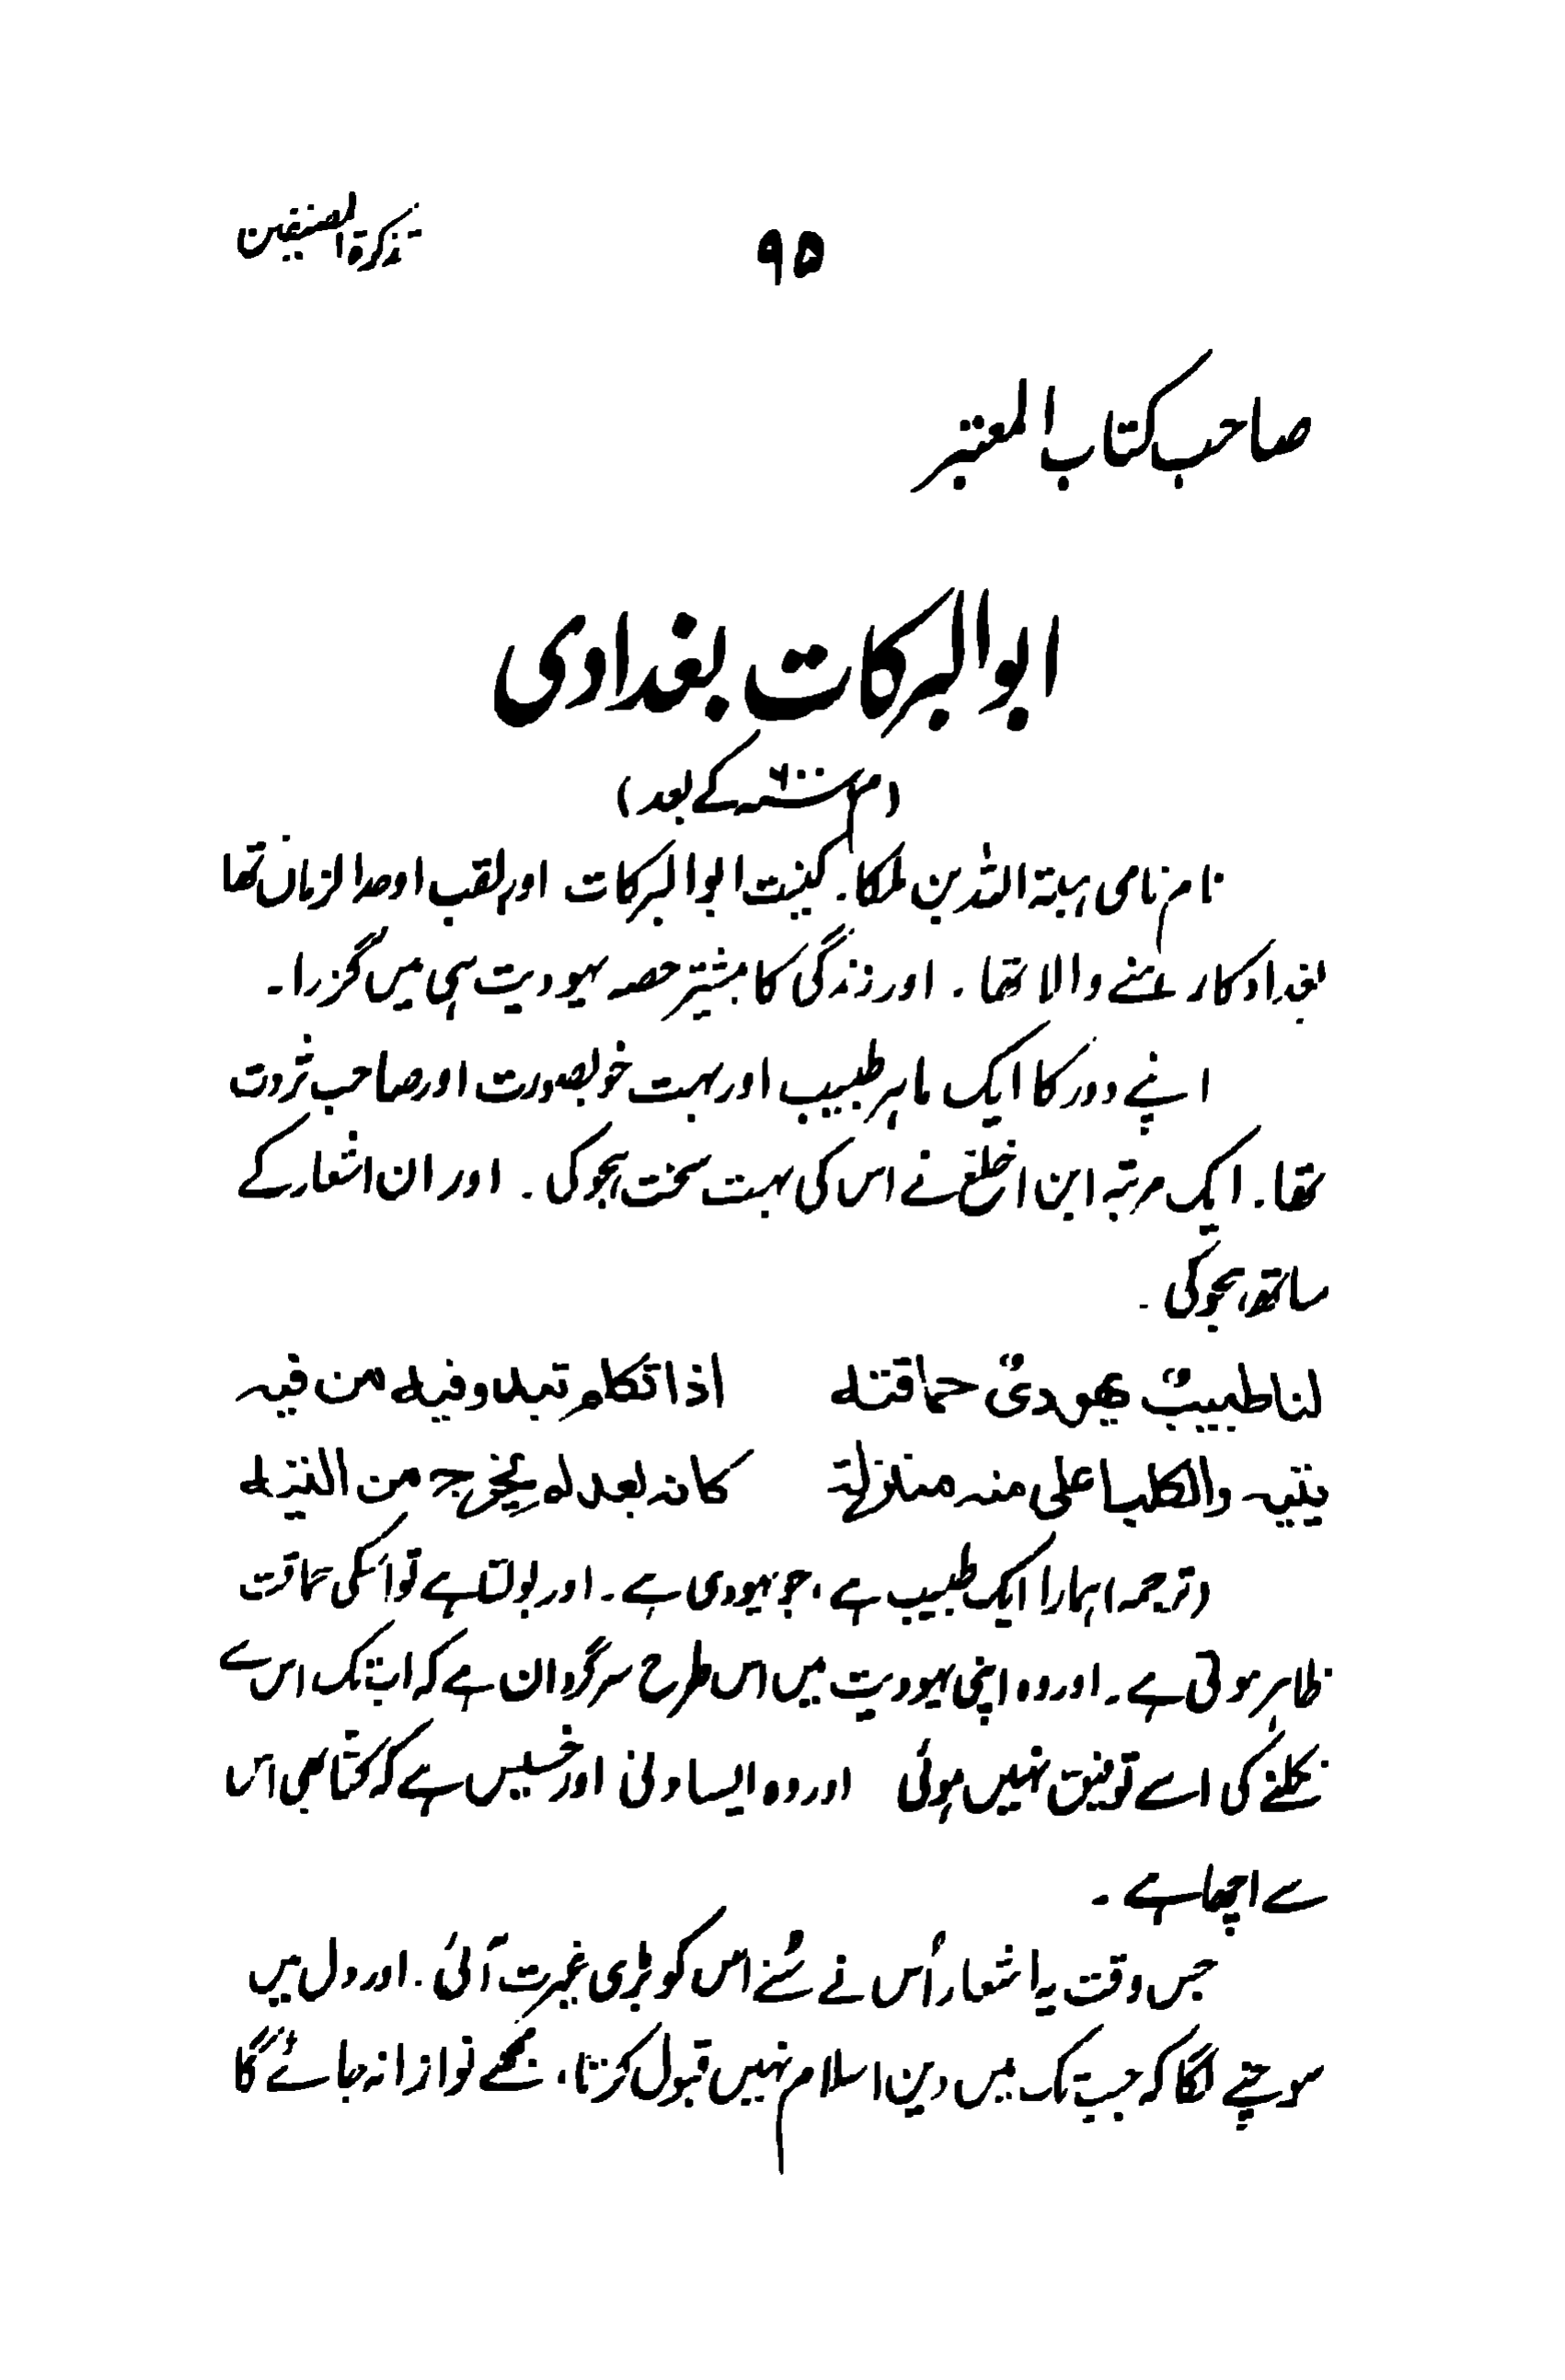 تذکرۃ المصنیفین
۹۵
صاحب کتاب المعتبر
ابو البرکات بغدادی
(م ۶۰۰ھ کے بعد)
نام نامی ہبۃ اللہ بن ملکا. کنیت ابو البرکات اور لقب اوحد الزمان تھا
بغداد کا رہنے والا تھا. اور زندگی کا بیشتر حصہ یہودیت ہی میں گزرا۔
اپنے دور کا ایک ماہر طبیب اور بہت خوبصورت اور صاحب ثروت
تھا. ایک مرتبہ ابن اخلخ نے اس کی بہت سخت ہجو کی. اور ان اشعار کے
ساتھ ہجو کی.
لنا طبیبٌ یھودیٌ حماقتہ اذا تکلم تبدو فیہ من فیہ
یتیہ والکلب اعلی منہ منزلۃ کانہ بعد لم یخرج من التیہ
(ترجمہ) ہمارا ایک طبیب ہے، جو یہودی ہے۔ اور بولتا ہے تو اسکی حماقت
ظاہر ہوتی ہے۔ اور وہ اپنی یہودیت میں اس طرح سرگردان ہے کہ اب تک اس سے
نکلنے کی اسے توفیق نہیں ہوئی اور وہ ایسا دنی اور خسیس ہے کہ کتا بھی اس
سے اچھا ہے۔
جس وقت یہ اشعار اُس نے سُنے اس کو بڑی غیرت آئی. اور دل میں
سوچنے لگا کہ جب تک میں دین اسلام نہیں قبول کرتا، مجھے نوازا نہ جائے گا